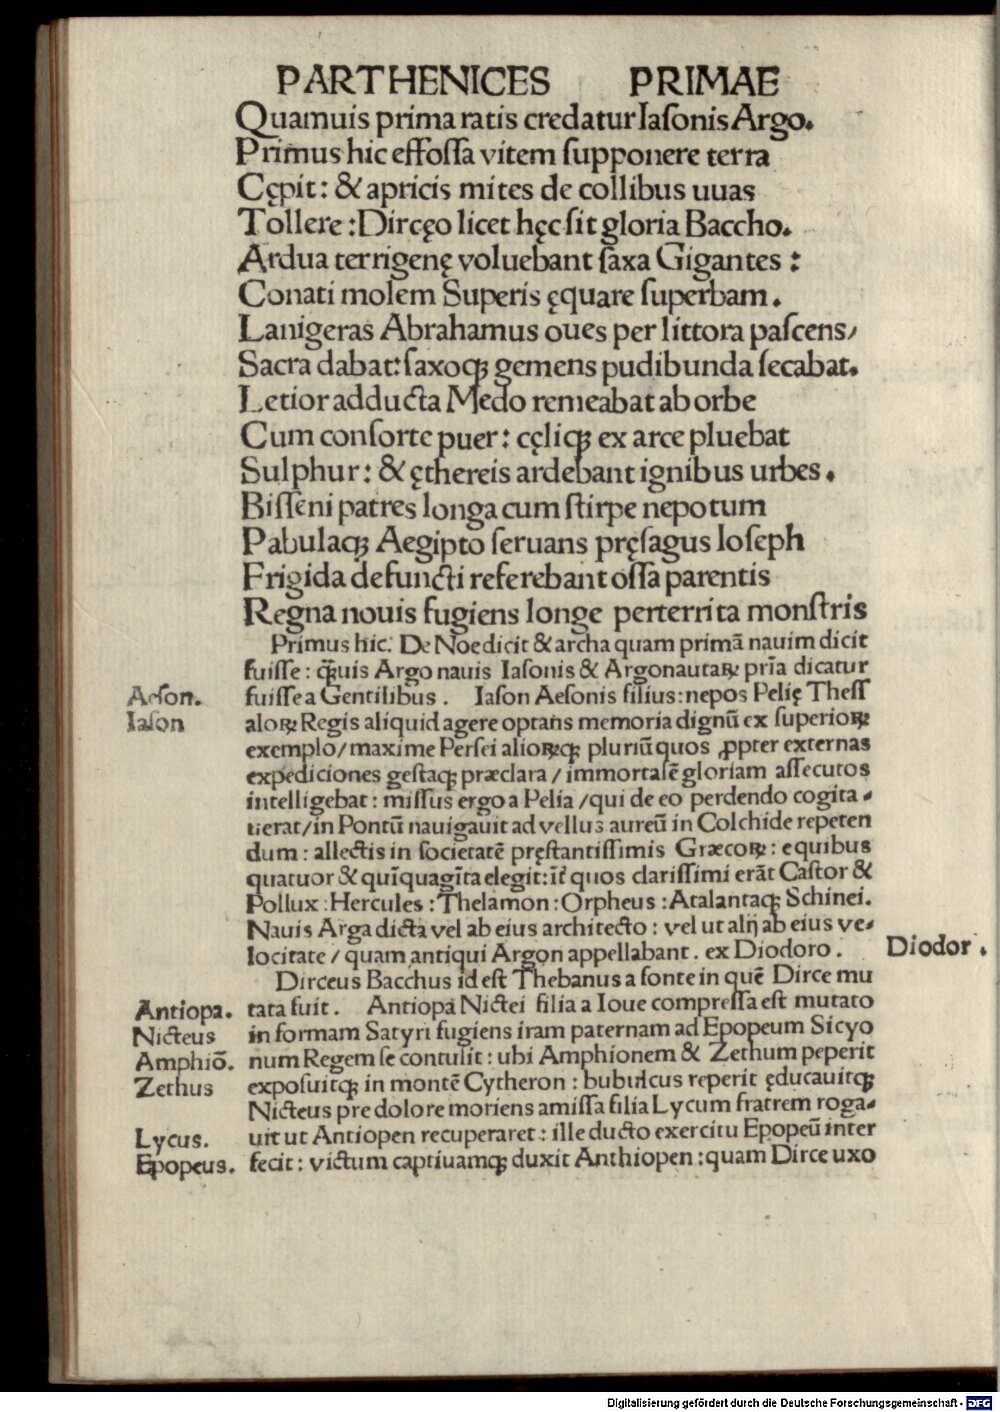 PARTHENICES PRIMAE
Quamuis prima ratis credatur Iaſonis Argo.
Primus hic effoſſa vitem ſupponere terra
Cępit: & apricis mites de collibus uuas
Tollere: Dircęo licet hęc ſit gloria Baccho.
Ardua terrigenę voluebant ſaxa Gigantes:
Conati molem Superis ęquare ſuperbam.
Lanigeras Abrahamus oues per littora paſcens/
Sacra dabat: ſaxoqꝫ gemens pudibunda ſecabat.
Letior adducta Medo remeabat ab orbe
Cum conſorte puer: cęliqꝫ ex arce pluebat
Sulphur: & ęthereis ardebant ignibus urbes.
Biſſeni patres longa cum ſtirpe nepotum
Pabulaqꝫ Aegipto ſeruans pręſagus Ioſeph
Frigida defuncti referebant oſſa parentis
Regna nouis fugiens longe perterrita monſtris
Primus hic. De Noe dicit & archa quam primā nauim dicit
fuiſſe: q̄uis Argo nauis Iaſonis & Argonautaꝝ pria dicatur
Aeſon. fuiſſe a Gentilibus. Iaſon Aeſonis filius: nepos Pelię Theſſ
Iaſon aloꝝ Regis aliquid agere optans memoria dignū ex ſuperioꝝ
exemplo/ maxime Perſei alioꝝqꝫ pluriū quos ꝓpter externas
expediciones geſtaqꝫ præclara / immortalē gloriam aſſecutos
intelligebat: miſſus ergo a Pelia / qui de eo perdendo cogita-
uerat/ in Pontū nauigauit ad vellus aureū in Colchide repeten
dum: allectis in ſocietatē pręſtantiſſimis Græcoꝝ: e quibus
quatuor & quīquagīta elegit: īt̄ quos clariſſimi erāt Caſtor &
Pollux: Hercules: Thelamon: Orpheus: Atalantaqꝫ Schinei.
Nauis Arga dicta vel ab eius architecto: vel ut alij ab eius ve-
locitate / quam antiqui Argon appellabant. ex Diodoro. Diodor.
Dirceus Bacchus id eſt Thebanus a fonte in quē Dirce mu
Antiopa. tata fuit. Antiopa Nictei filia a Ioue compreſſa eſt mutato
Nicteus in formam Satyri fugiens iram paternam ad Epopeum Sicyo
Amphiō. num Regem ſe contulit: ubi Amphionem & Zethum peperit
Zethus expoſuitqꝫ in montē Cytheron: bubulcus reperit ęducauitqꝫ
Nicteus pre dolore moriens amiſſa filia Lycum fratrem roga-
Lycus. uit ut Antiopen recuperaret: ille ducto exercitu Epopeū inter
Epopeus. fecit: victum captiuamqꝫ duxit Anthiopen: quam Dirce uxo
Digitalisierung gefördert durch die Deutsche Forschungsgemeinschaft - DFG